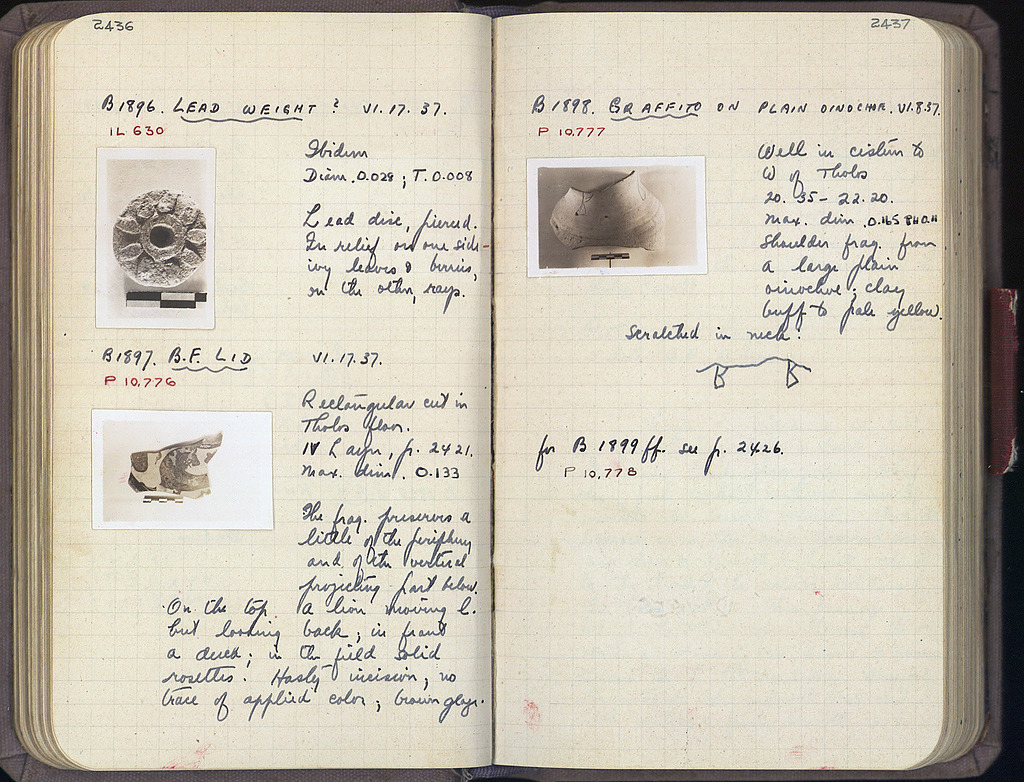 2436
B1896. LEAD WEIGHT? VI.17.37.
IL 630
Ibidem
Diam. 0.028; T. 0.008
Lead disc, pierced.
In relief on one side -
ivy leaves & berries,
on the other, rays.
B1897. B.F. LID VI.17.37.
P 10,776
Rectangular cut in
Tholos floor.
IV Layer, p. 2421.
Max. dim. 0.133
The frag. preserves a
little of the periphery
and of the vertical
projecting part below.
On the top a lion moving l.
but looking back; in front
a duck; in the field solid
rosettes. Hasty incision; no
trace of applied color; brown glaze.
2437
B1898. GRAFFITO ON PLAIN OINOCHOE. VI.8.37.
P 10,777
Well in cistern to
W of Tholos
20.35 - 22.20.
Max. dim. 0.165
Shoulder frag. from
a large plain
oinochoe; clay
buff to pale yellow.
Scratched in neck:
for B 1899 ff. see p. 2426.
P 10,778